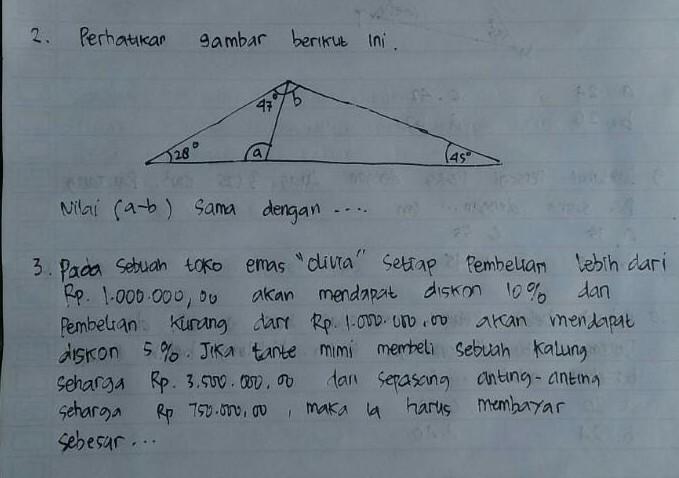 2. Perhatikan gambar berikut ini.
47° b
28° a 45°
Nilai (a-b) sama dengan ....
3. Pada sebuah toko emas "olivia" setiap pembelian lebih dari
Rp. 1.000.000,00 akan mendapat diskon 10% dan
pembelian kurang dari Rp. 1.000.000,00 akan mendapat
diskon 5%. Jika tante mimi membeli sebuah kalung
seharga Rp. 3.500.000,00 dan sepasang anting-anting
seharga Rp 750.000,00, maka ia harus membayar
sebesar...